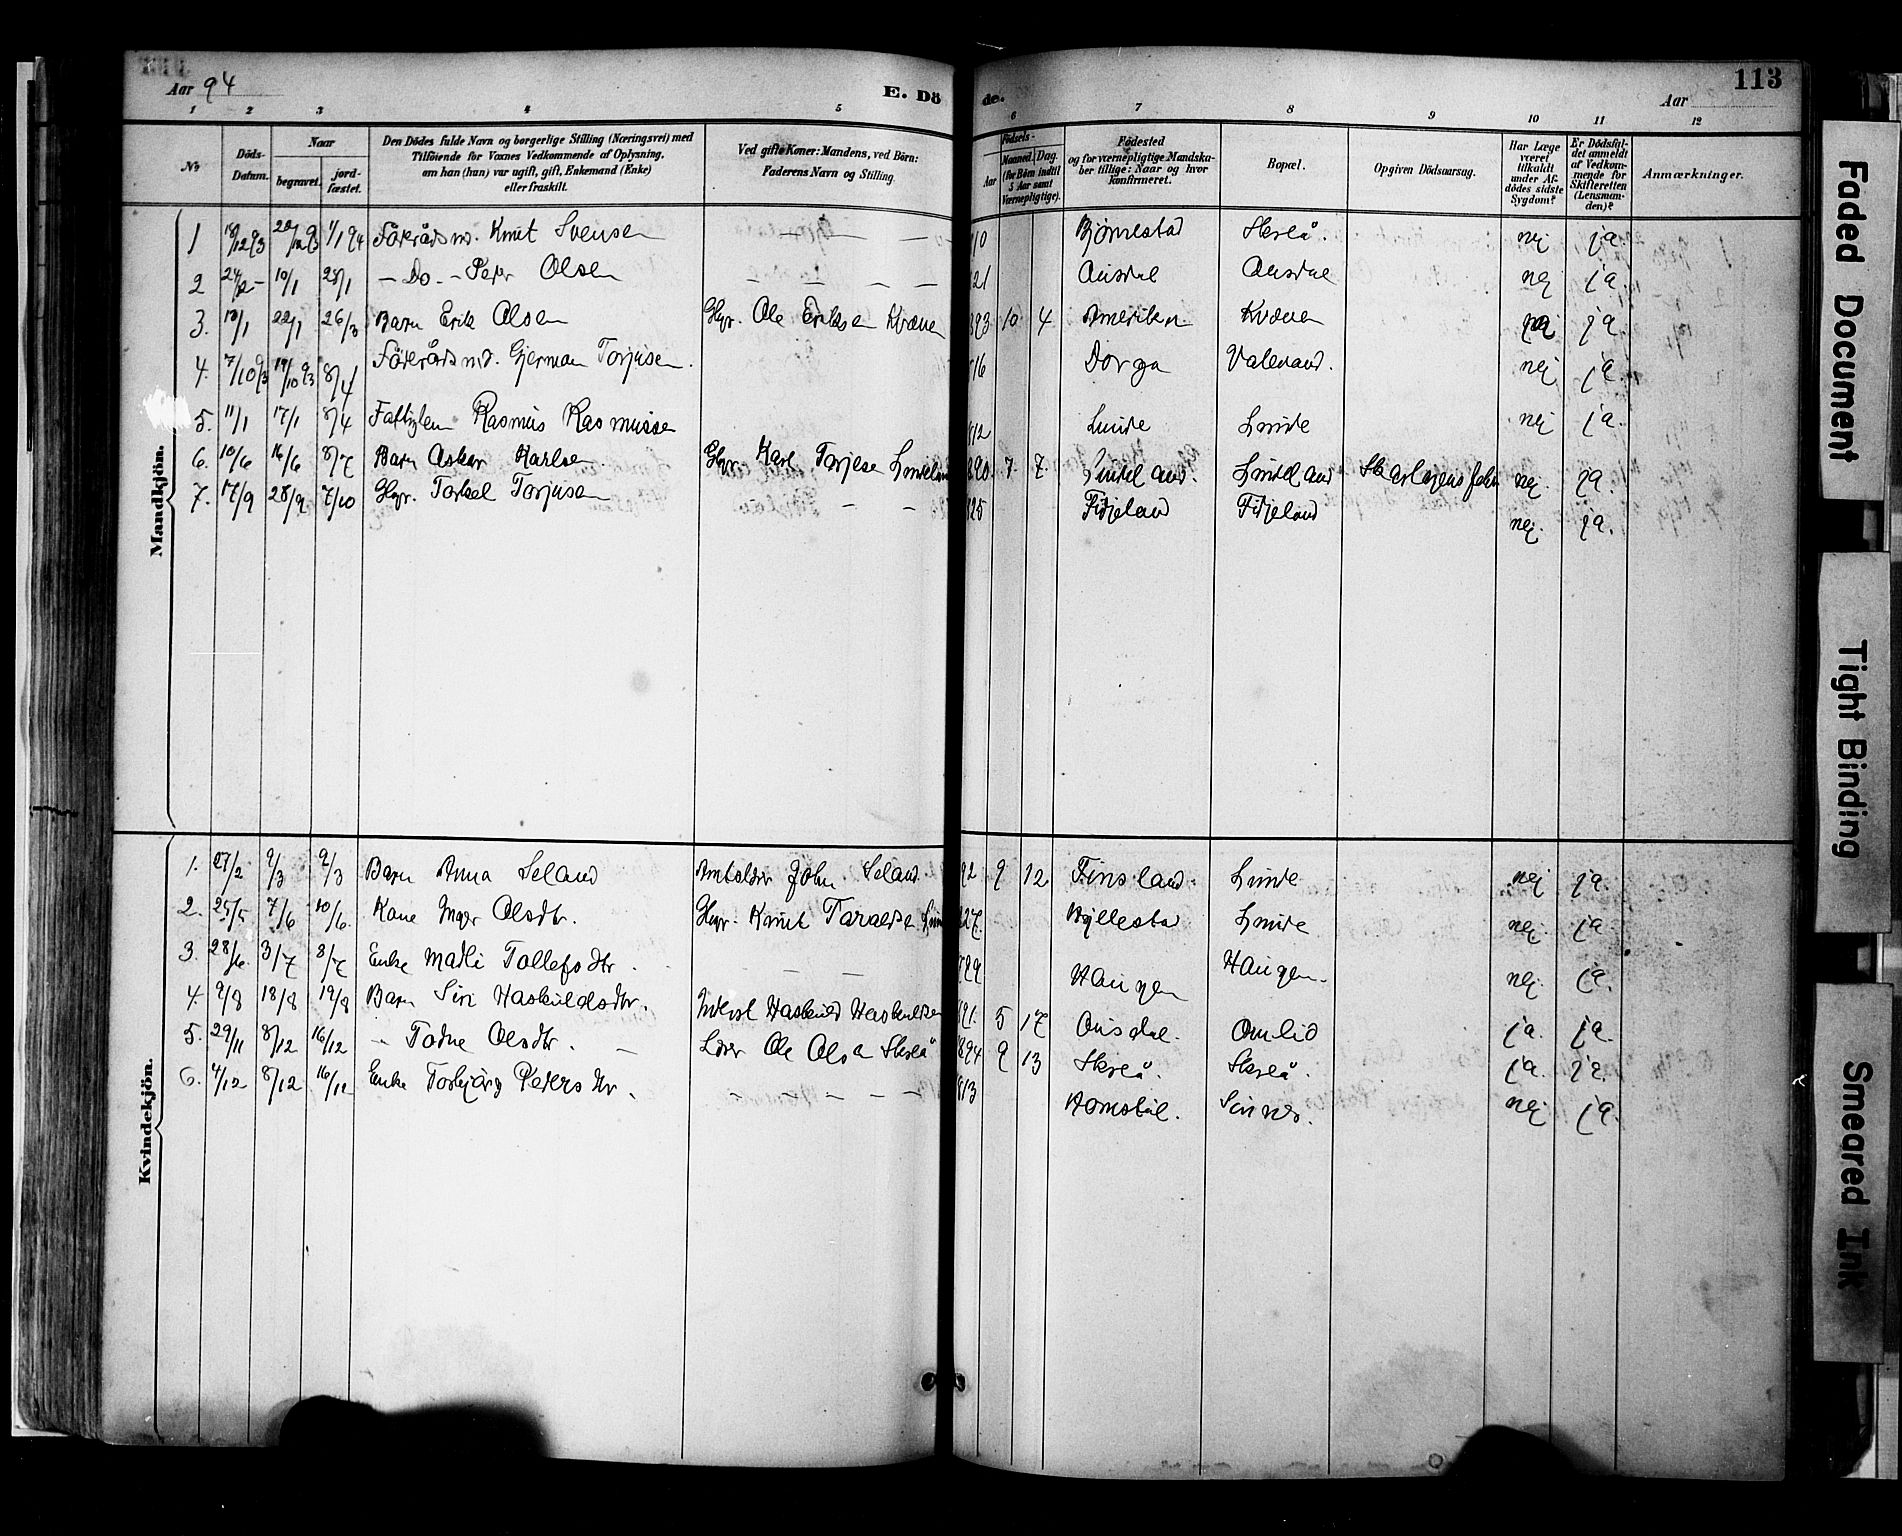 Aar 94 E. Dö
de. Aar 113
1 2 3 4 5 6 7 8 9 10 11 12
No Döds-Datum. Naar begravet. jord-fæstet. Den Dödes fulde Navn og borgerlige Stilling (Næringsvei) med Tilföiende for Voxnes Vedkommende af Oplysning, om han (han) var ugift, gift, Enkemand (Enke) eller fraskilt. Ved gifte Koner: Mandens, ved Börn: Faderens Navn og Stilling. Födsels- Aar Maaned. Dag. (for Börn indtil 5 Aar samt Værnepligtige). Födested og for værnepligtige Mandskaber tillige: Naar og hvor konfirmeret. Bopæl. Opgiven Dödsaarsag. Har Læge været tilkaldt under Afdödes sidste Sygdom? Er Dödsfaldet anmeldt af Vedkommende for Skifteretten (Lensmanden)? Anmærkninger.
Mandkjön.
1 18/12 93 28/12 93 1/1 94 Föderådsmd. Knut Svensen — — — 10 Bjørnestad Skreå. nej ja.
2 24/12 — 10/1 25/1 — Do — Peder Olsen — — — — 21 Ousdal Ousdal nej ja
3. 13/1 22/1 26/3 Barn Erik Olsen Gbr. Ole Eriksen Kvæven 893 10 4 Amerika Kvæven nej ja.
4. 7/10 93 19/10 93 8/4 Föderådsmd. Gjerman Torjusen. 816 Dorga Valevand. nej ja.
5. 11/1 17/1 8/4 Fattiglem Rasmus Rasmussen 812 Lunde Lunde nej ja.
6. 10/6 16/6 8/7 Barn Oskar Karlsen. Gbr. Karl Torjese Lindeland 890 7. 7. Lindeland. Lindeland Skarlagensfeber nej. ja.
7. 17/9 28/9 7/10 Gbr. Torkel Torjusen — — 825 Fidjeland Fidjeland nej. ja.
Kvindekjön.
1. 27/2 9/3 9/3 Barn Anna Seland Amtsskr John Seland. 92 9 12 Finsland. Lunde nej ja.
2. 25/5 7/6 10/6. Kone Inger Olsdtr. Gbr. Knut Taraldsen Lunde 827. Hyllestad Lunde nej. ja.
3. 28/6. 3/7 8/7 Enke Malli Tollefsdtr. — — 799 Haugen Haugen. nej. ja.
4. 9/8 18/8 19/8 Barn Siri Haskuldsdtr. Inderst Haskuld Haskuldsen 891. 5 17 Ousdal. Omlid ja. ja.
5. 29/11 8/12 16/12 — Todne Olsdtr. — Lærer Ole Olsen Skreå 894 9 13 Skreå. Skreå. ja. ja.
6. 4/12 8/12 16/12 Enke Torbjørg Pedersdtr. — — — — — 813 Homstøl. Sinnes. nej ja.
Faded Document
Tight Binding
Smeared Ink